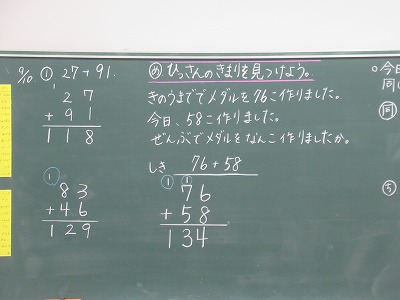 9/10 ① 27+91.
1
27
+91
118
①
83
+46
129
め ひっさんのきまりを見つけよう。
きのうまででメダルを76こ作りました。
今日、58こ作りました。
ぜんぶでメダルをなんこ作りましたか。
しき 76+58
① ①
76
+58
134
○今日
同
同
ち